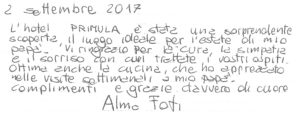 2 settembre 2017
L'hotel PRIMULA è stata una sorprendente
scoperta, il luogo ideale per l'estate di mio
papà. Vi ringrazio per la cura, la simpatia
e il sorriso con cui trattate i vostri ospiti.
Ottima anche la cucina, che ho apprezzato
nelle visite settimanali a mio papà.
complimenti e grazie davvero di cuore
Alma